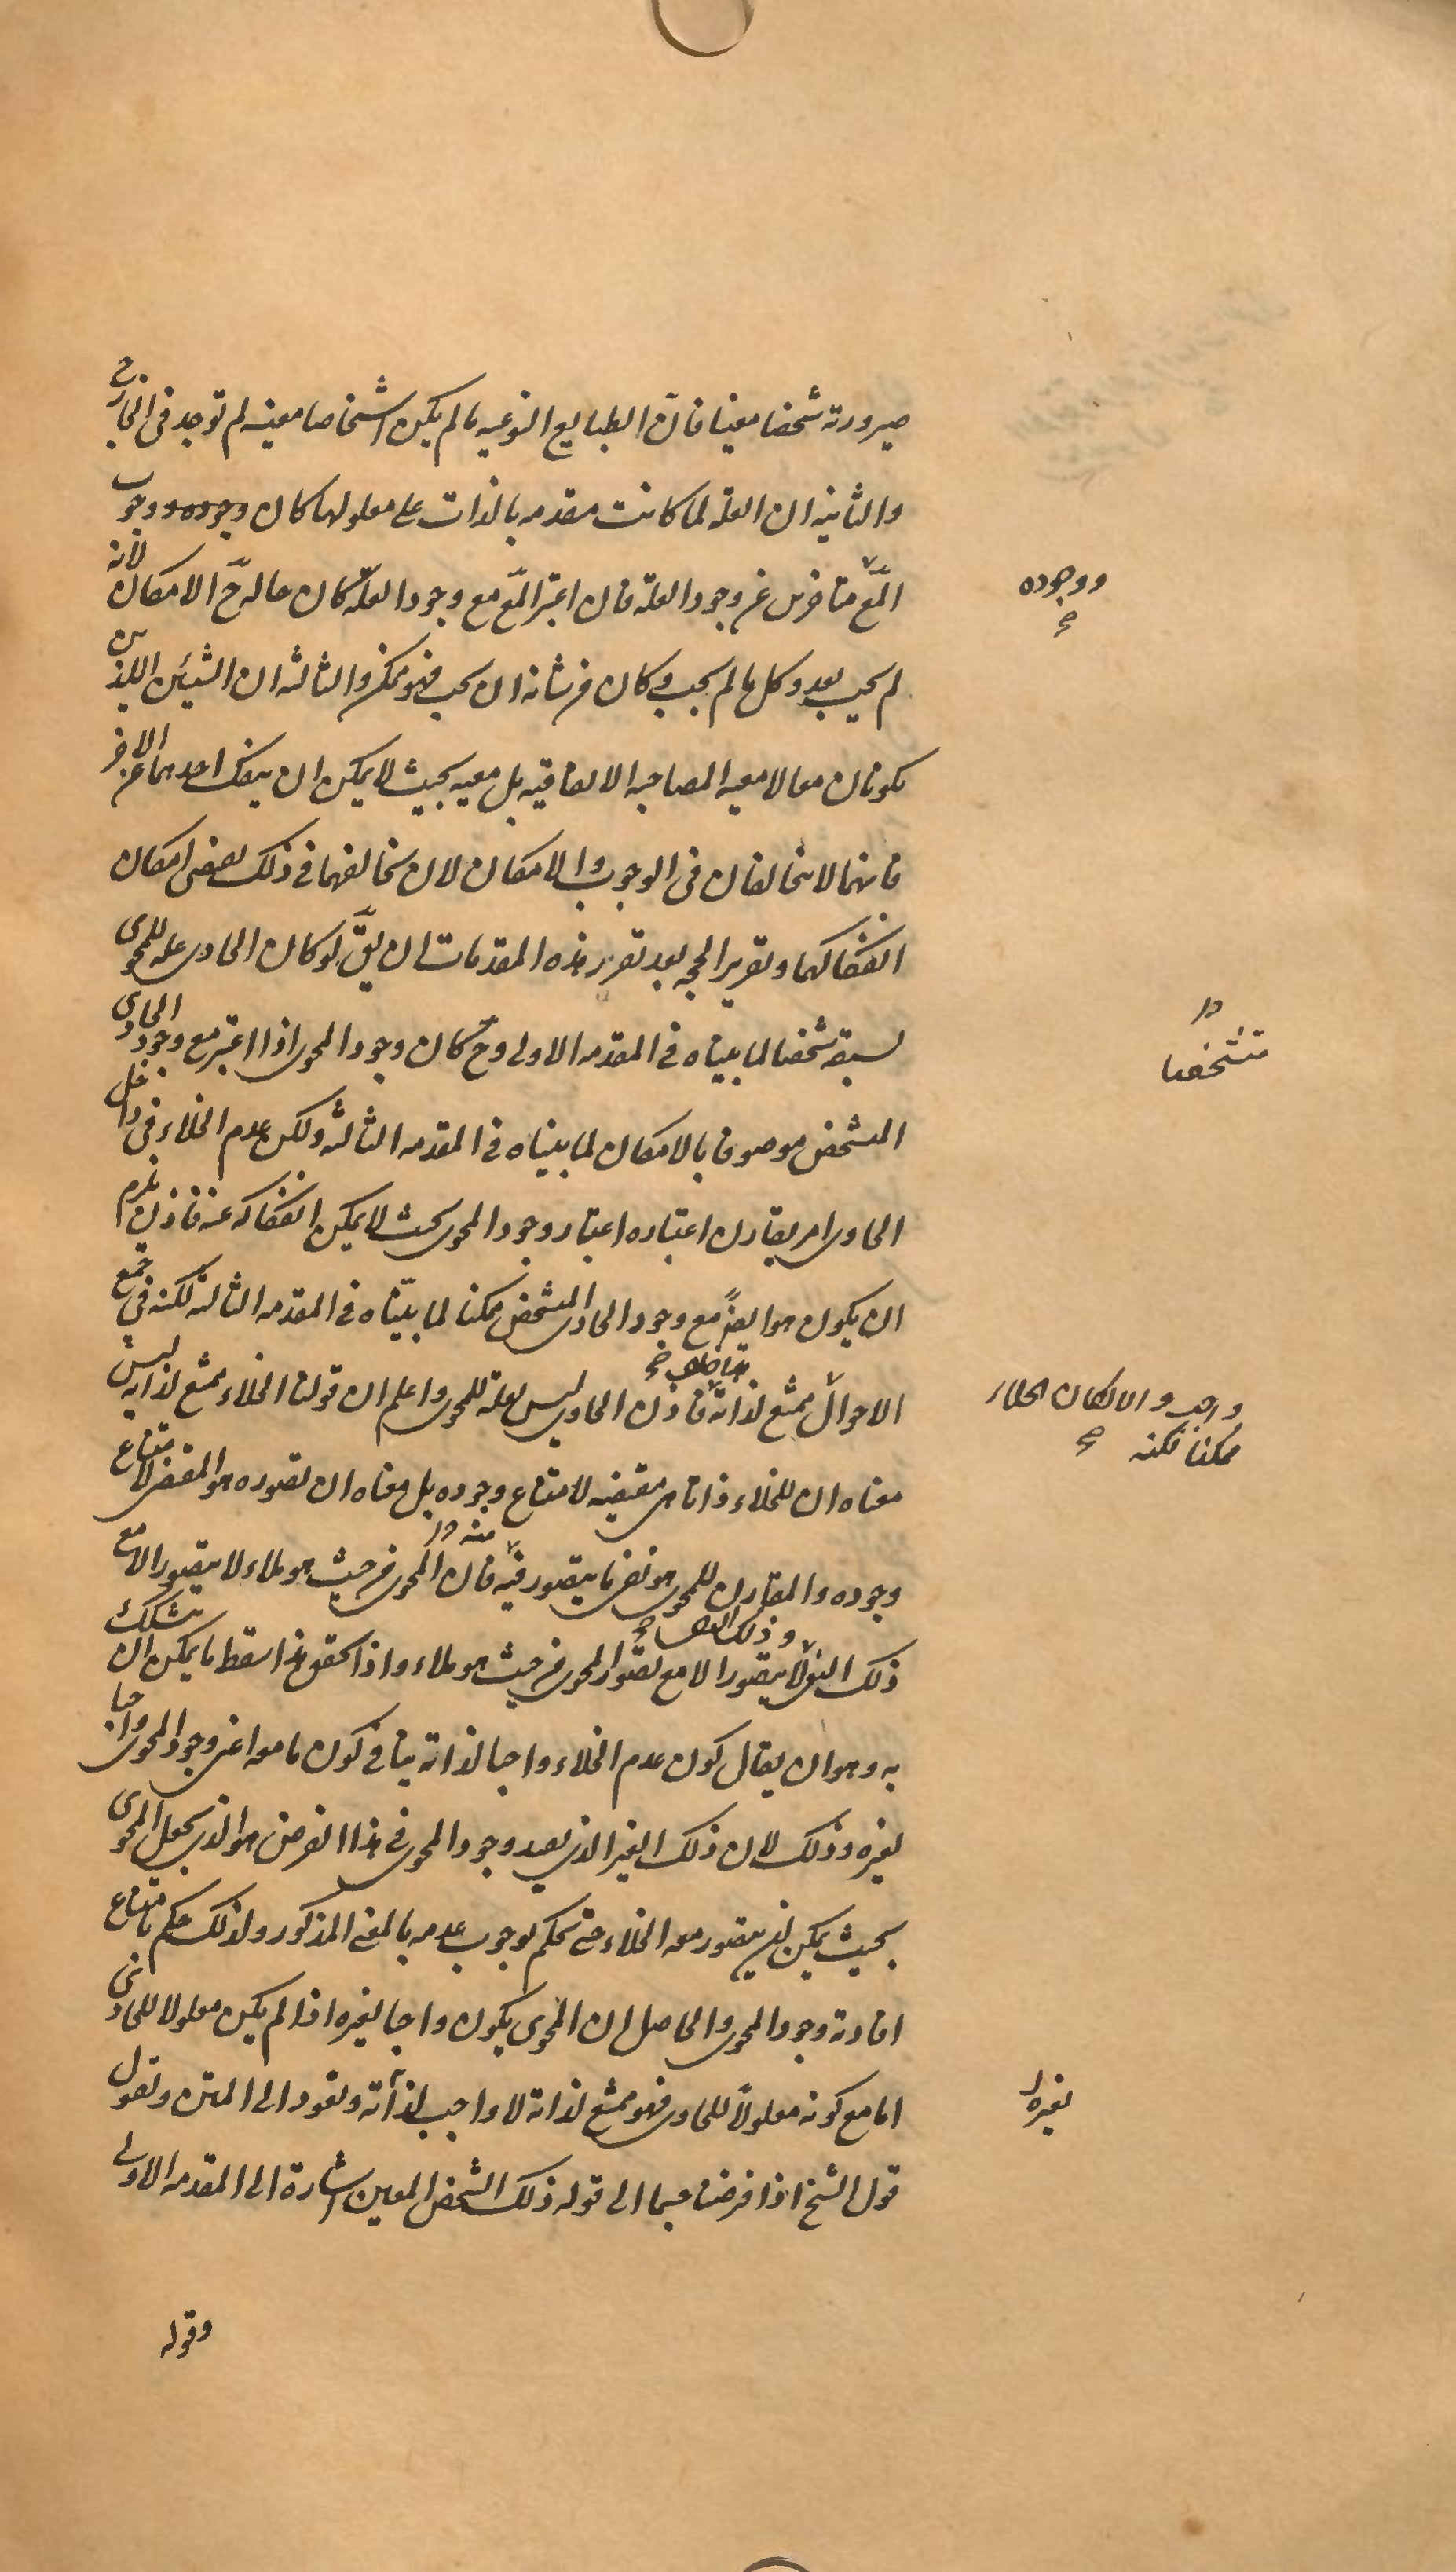 صيرورته شخصا معينا فانّ الطبايع النوعيه ما لم يكن اشخاصا معينه لم توجد فى الخارج
والثانيه ان العلة لما كانت مقدمه بالذات على معلولها كان وجوده ووجوب
المعّ متاخرين عن وجود العلة فان اعتبر المعّ مع وجود العلّة كان حاله حّ الامكان لأنه
لم يجب بعد وكل ما لم يجب وكان من شانه ان يجب فهو ممكن والثالثه ان الشيئين اللذين
يكونان معا لا معيه المصاحبه الاتفاقيه بل معيه بحيث لا يمكن ان ينفك احدهما عن الاخر
فانهما لا يتخالفان فى الوجوب والامكان لان تخالفهما فى ذلك يقتضى امكان
انفكاكهما وتقرير الحجه بعد تقرير هذه المقدمات ان يقّ لو كان الحاوى علة للمحوى
لسبقه شخصا لما بيناه فى المقدمه الاولى وحّ كان وجود المحوى اذا اعتبر مع وجود الحاوى
المشخص موصوفا بالامكان لما بيناه فى المقدمه الثالثه ولكن عدم الخلاء فى داخل
الحاوى امر يقارن اعتباره اعتبار وجود المحوى بحيث لا يمكن انفكاكه عنه فاذن يلزم
ان يكون هو ايضًا مع وجود الحاوى المشخص ممكنا لما بيّناه فى المقدمه الثالثه لكنه فى جميع
الاحوال ممتنع لذاته فاذن الحاوى ليس بعلة للمحوى واعلم ان قولنا الخلاء ممتنع لذاته ليس
معناه ان للخلاء ذاتا هى مقتضيه لامتناع وجوده بل معناه ان تصوره هو المقتضى لامتناع
وجوده والمقارن للمحوى هو نفى ما يتصور فيه فان المحوى من حيث هو ملاء لا يتصور الا مع
منه
ذلك النفى لا يتصور الا مع تصور المحوى من حيث هو ملاء واذا تحقق هذا سقط ما يمكن ان يتشكك
به وهو ان يقال كون عدم الخلاء واجبا لذاته ينافى كون ما معه اعنى وجود المحوى واجبا
لغيره وذلك لان ذلك الغير الذى يفيد وجود المحوى فى هذا الفرض هو الذى يجعل المحوى
بحيث يمكن ان يتصور معه الخلاء حتى يحكم بوجوب عدمه بالمعنى المذكور ولذلك حكم بامتناع
افادته وجود المحوى والحاصل ان المحوى يكون واجبا لغيره اذا لم يكن معلولا للحاوى
اما مع كونه معلولًا للحاوى فهو ممتنع لذاته لا واجب لذاته ونعود الى المتن ونقول
قول الشيخ اذا فرضنا جسما الى قوله ذلك الشخص المعين اشارة الى المقدمه الاولى
وقوله
ووجوده
متشخصا
واجب والا لكان الخلاء
ممكنا لكنه
لغيره